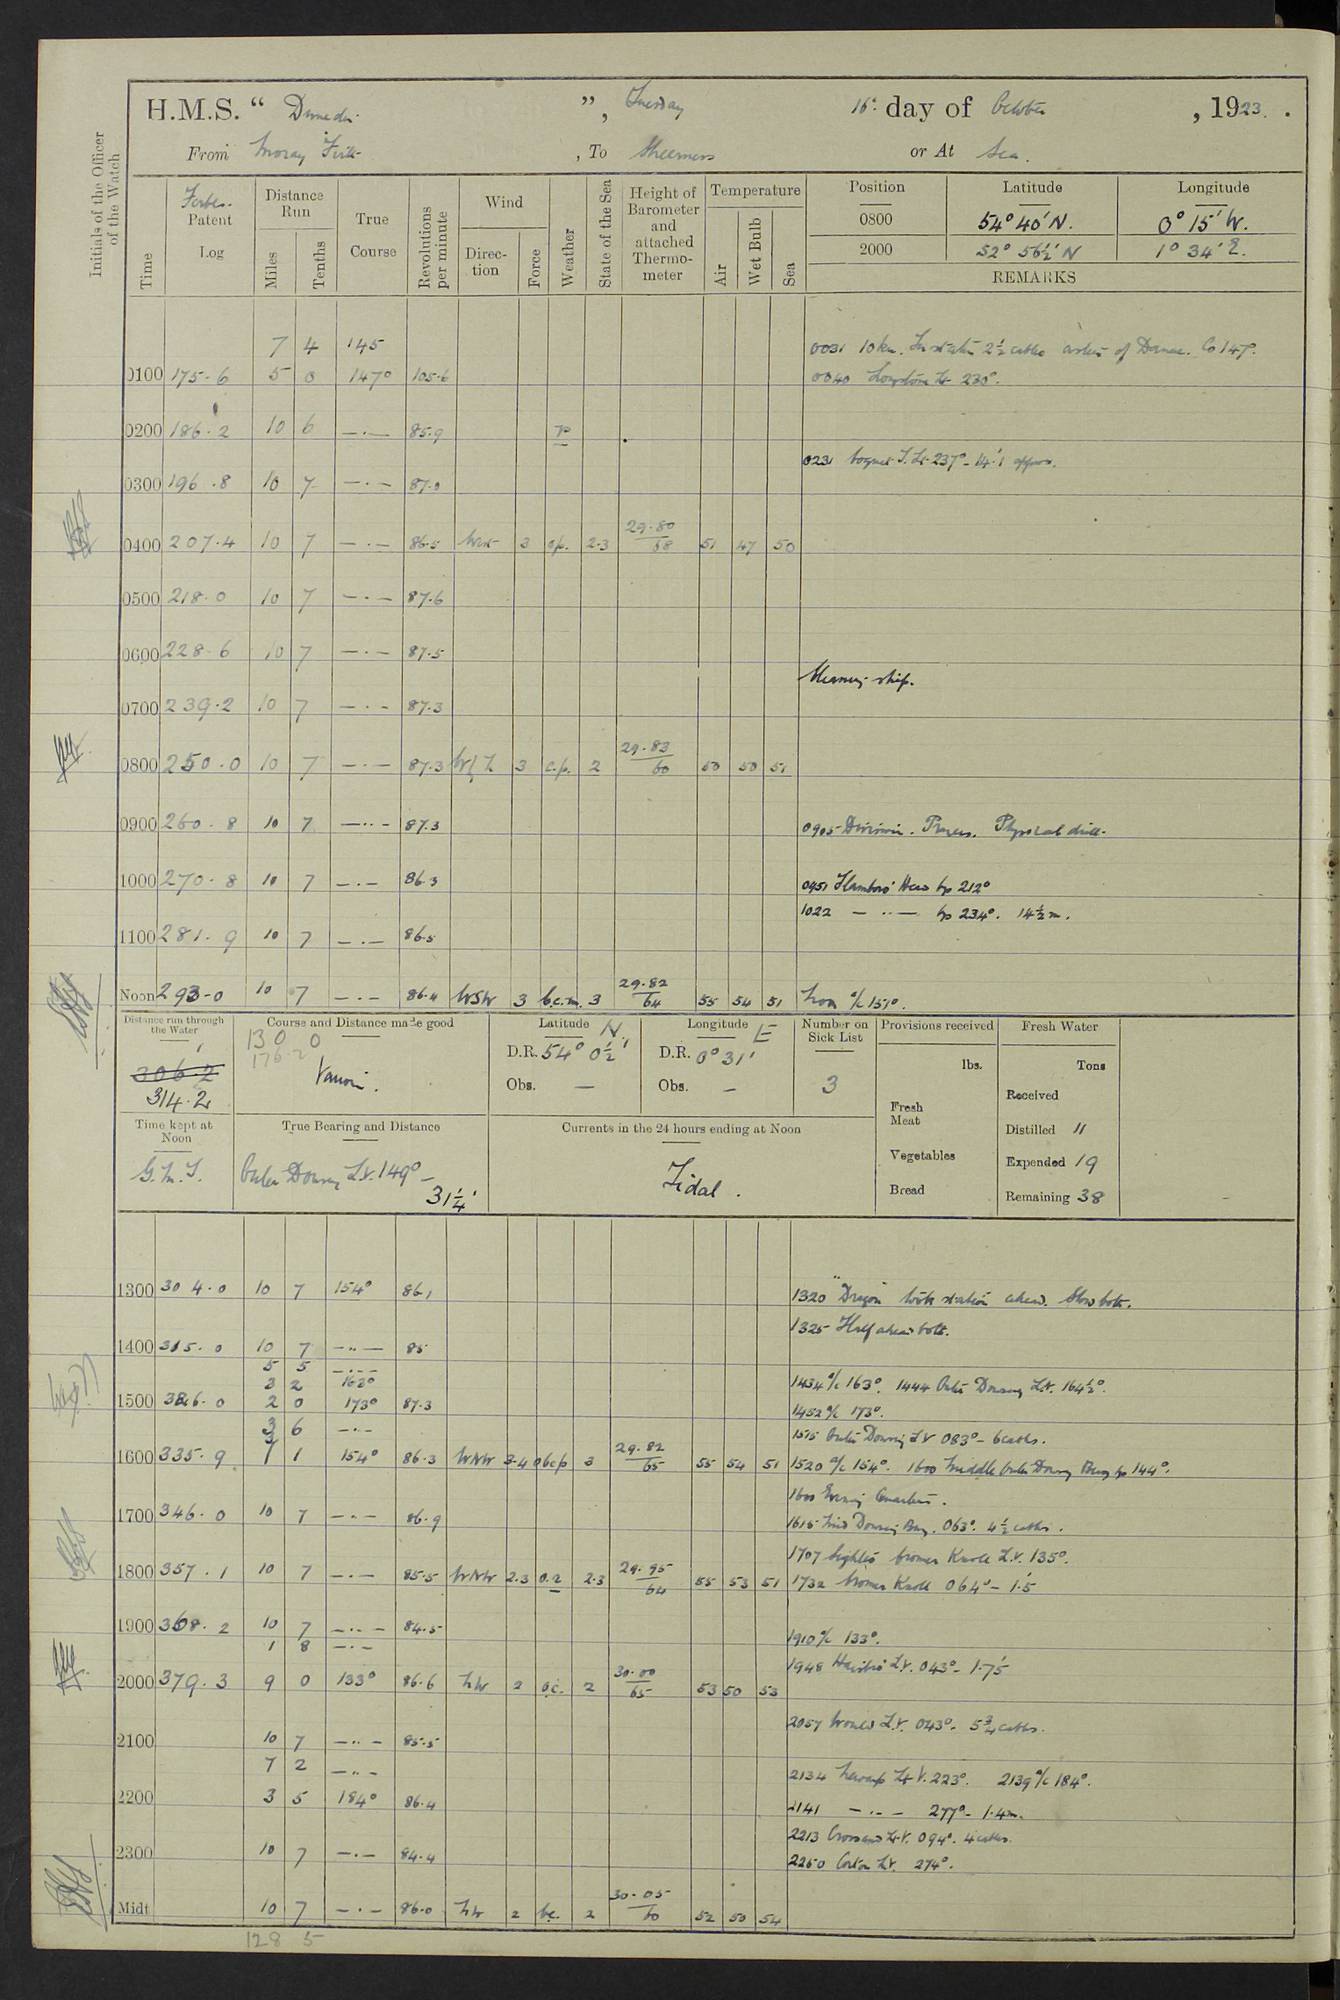 H.M.S. “ Dunedin ”, Tuesday 16th day of October , 1923 .
From Moray Firth , To Sheerness or At Sea.
Initials of the Officer of the Watch
Time
Forbes Patent Log
Distance Run
Miles
Tenths
True Course
Revolutions per minute
Wind
Direction
Force
Weather
State of the Sea
Height of Barometer and attached Thermometer
Temperature
Air
Wet Bulb
Sea
Position Latitude Longitude
0800 54° 40' N. 0° 15' W.
2000 52° 56½' N 1° 34' E.
REMARKS
7 4 145 0031 10 kn. In station 2½ cables astern of Danae. Co 147°.
0100 175.6 5 0 147° 105.6 0040 Longstone Lt 230°.
0200 186.2 10 6 —·— 85.9
0231 Coquet I. Lt. 237° - 14'.1 approx.
0300 196.8 10 7 —·— 87.0
0400 207.4 10 7 —·— 86.5 3 cp. 2.3 29.80 / 58 51 47 50
0500 218.0 10 7 —·— 87.6
0600 228.6 10 7 —·— 87.5
Cleaning ship.
0700 239.2 10 7 —·— 87.3
0800 250.0 10 7 —·— 87.3 3 c.p. 2 29.83 / 60 50 50 51
0900 260.8 10 7 —··— 87.3 0905 Divisions. Prayers. Physical drill.
1000 270.8 10 7 —·— 86.3 0951 Flamboro' Head bg 212°
1022 — ·· — bg 234°. 14½ m.
1100 281.9 10 7 —·— 86.5
Noon 293.0 10 7 —·— 86.4 WSW 3 b.c.m. 3 29.82 / 64 55 54 51 Noon a/c 157°.
Distance run through the Water
306.2
314.2
Course and Distance made good
130 0
176.2
Various.
Latitude N.
D.R. 54° 0½'
Obs. —
Longitude E
D.R. 0° 31'
Obs. —
Number on Sick List
3
Provisions received
lbs.
Fresh Meat
Vegetables
Bread
Fresh Water
Tons
Received
Distilled 11
Expended 19
Remaining 38
Time kept at Noon
G.M.T.
True Bearing and Distance
Outer Dowsing L.V. 149° — 31¼'
Currents in the 24 hours ending at Noon
Tidal.
1300 304.0 10 7 154° 86.1 1320 "Dragon" took station ahead. Slow both.
1325 Half ahead both.
1400 315.0 10 7 —··— 85
5 5 —·—·—
3 2 163° 1434 a/c 163°. 1444 Outer Dowsing L.V. 164½°.
1500 326.0 2 0 173° 87.3 1452 a/c 173°.
3 6 —·— 1515 Outer Dowsing L.V 083° - 6 cables.
1600 335.9 1 154° 86.3 WNW 3-4 obcp 3 29.82 / 65 55 54 51 1520 a/c 154°. 1600 Middle Outer Dowsing Buoy bg 144°.
1600 Evening Quarters.
1700 346.0 10 7 —·— 86.9 1615 Mid Dowsing Buoy. 063°. 4½ cables.
1707 Sighted Cromer Knoll L.V. 135°.
1800 357.1 10 7 —·— 85.5 WNW 2.3 2.3 29.95 / 64 55 53 51 1732 Cromer Knoll 064° - 1'.5
1900 368.2 10 7 —··— 84.5
1 8 —·— 1910 a/c 133°.
1948 Haisbro' L.V. 043° - 1'.75
2000 379.3 9 0 133° 86.6 NW 2 2 30.00 / 65 53 50 53
2057 L.V. 043°. 5¾ cables.
2100 10 7 —··— 85.5
7 2 —··— 2134 Newarp Lt V. 223°. 2139 a/c 184°.
2200 3 5 184° 86.4 2141 —·— 277° - 1.4 m.
2213 Cross Sand Lt. V. 094°. 4 cables.
2300 10 7 —·— 84.4 2250 Corton L.V. 274°.
Midt 10 7 —·— 86.0 NW 2 bc. 2 30.05 / 60 52 50 54
128 5